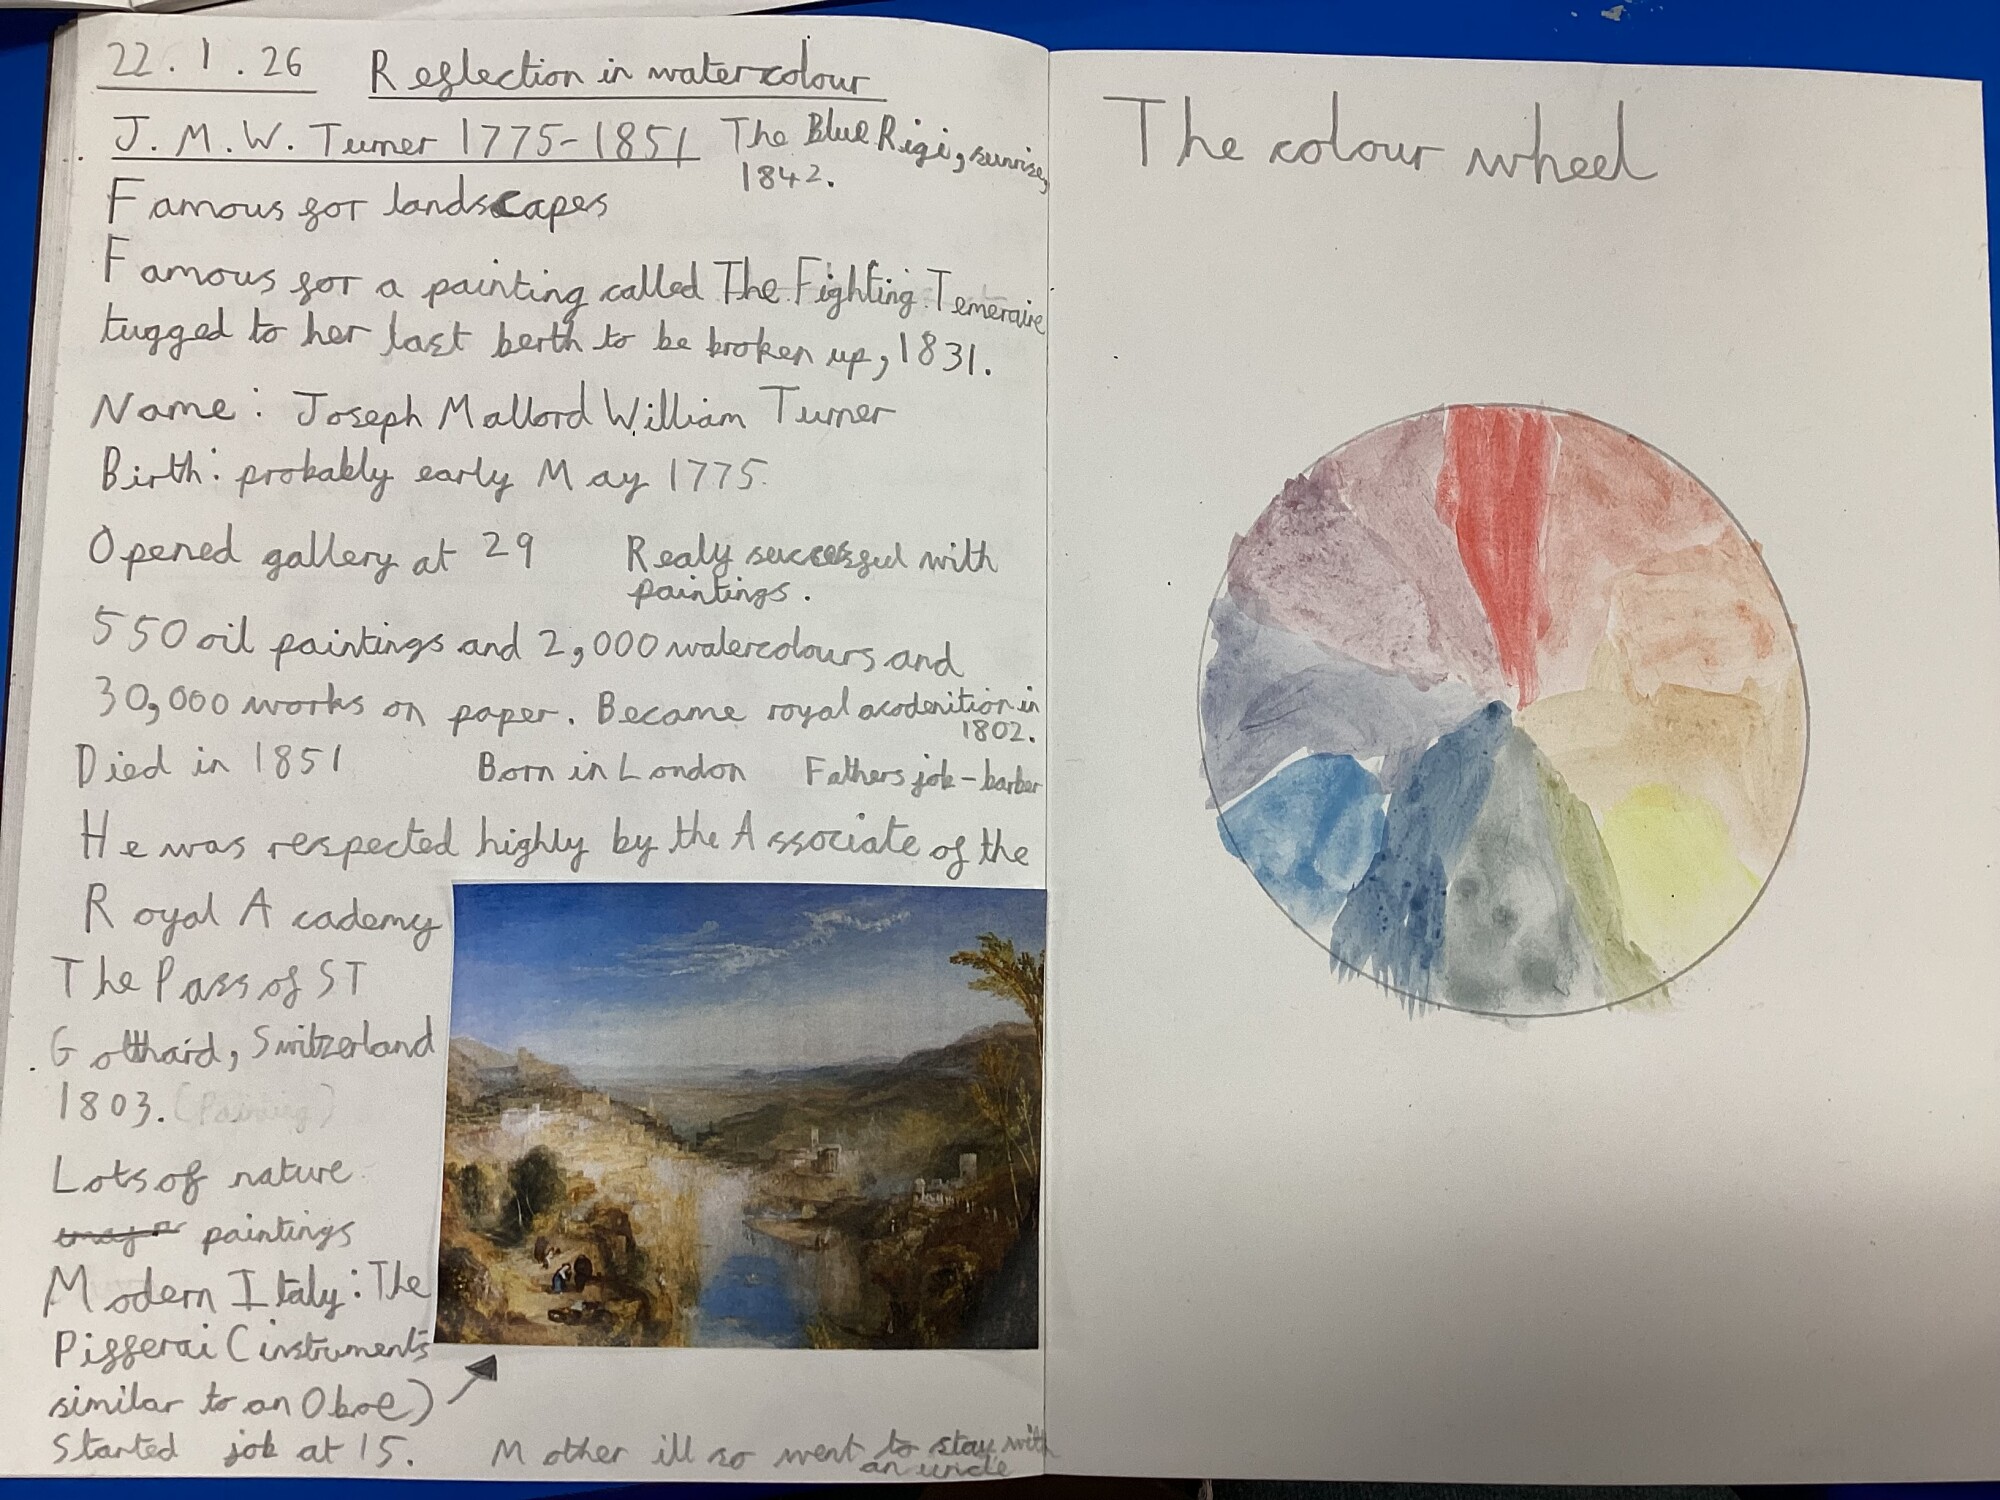 22.1.26 Reflection in watercolour
J.M.W. Turner 1775-1851 The Blue Rigi, sunrise,
1842.
Famous for landscapes
Famous for a painting called The Fighting Temeraire
tugged to her last berth to be broken up, 1831.
Name: Joseph Mallord William Turner
Birth: probably early May 1775.
Opened gallery at 29 Realy successful with
paintings.
550 oil paintings and 2,000 watercolours and
30,000 works on paper. Became royal acodemition in
1802.
Died in 1851 Born in London Fathers job - barber
He was respected highly by the Associate of the
Royal Academy
The Pass of ST
Gotthard, Switzerland
1803. (Painting)
Lots of nature
paintings
Modern Italy: The
Pifferai (instruments
similar to an Oboe)
Started job at 15. Mother ill so went to stay with
an uncle
The colour wheel